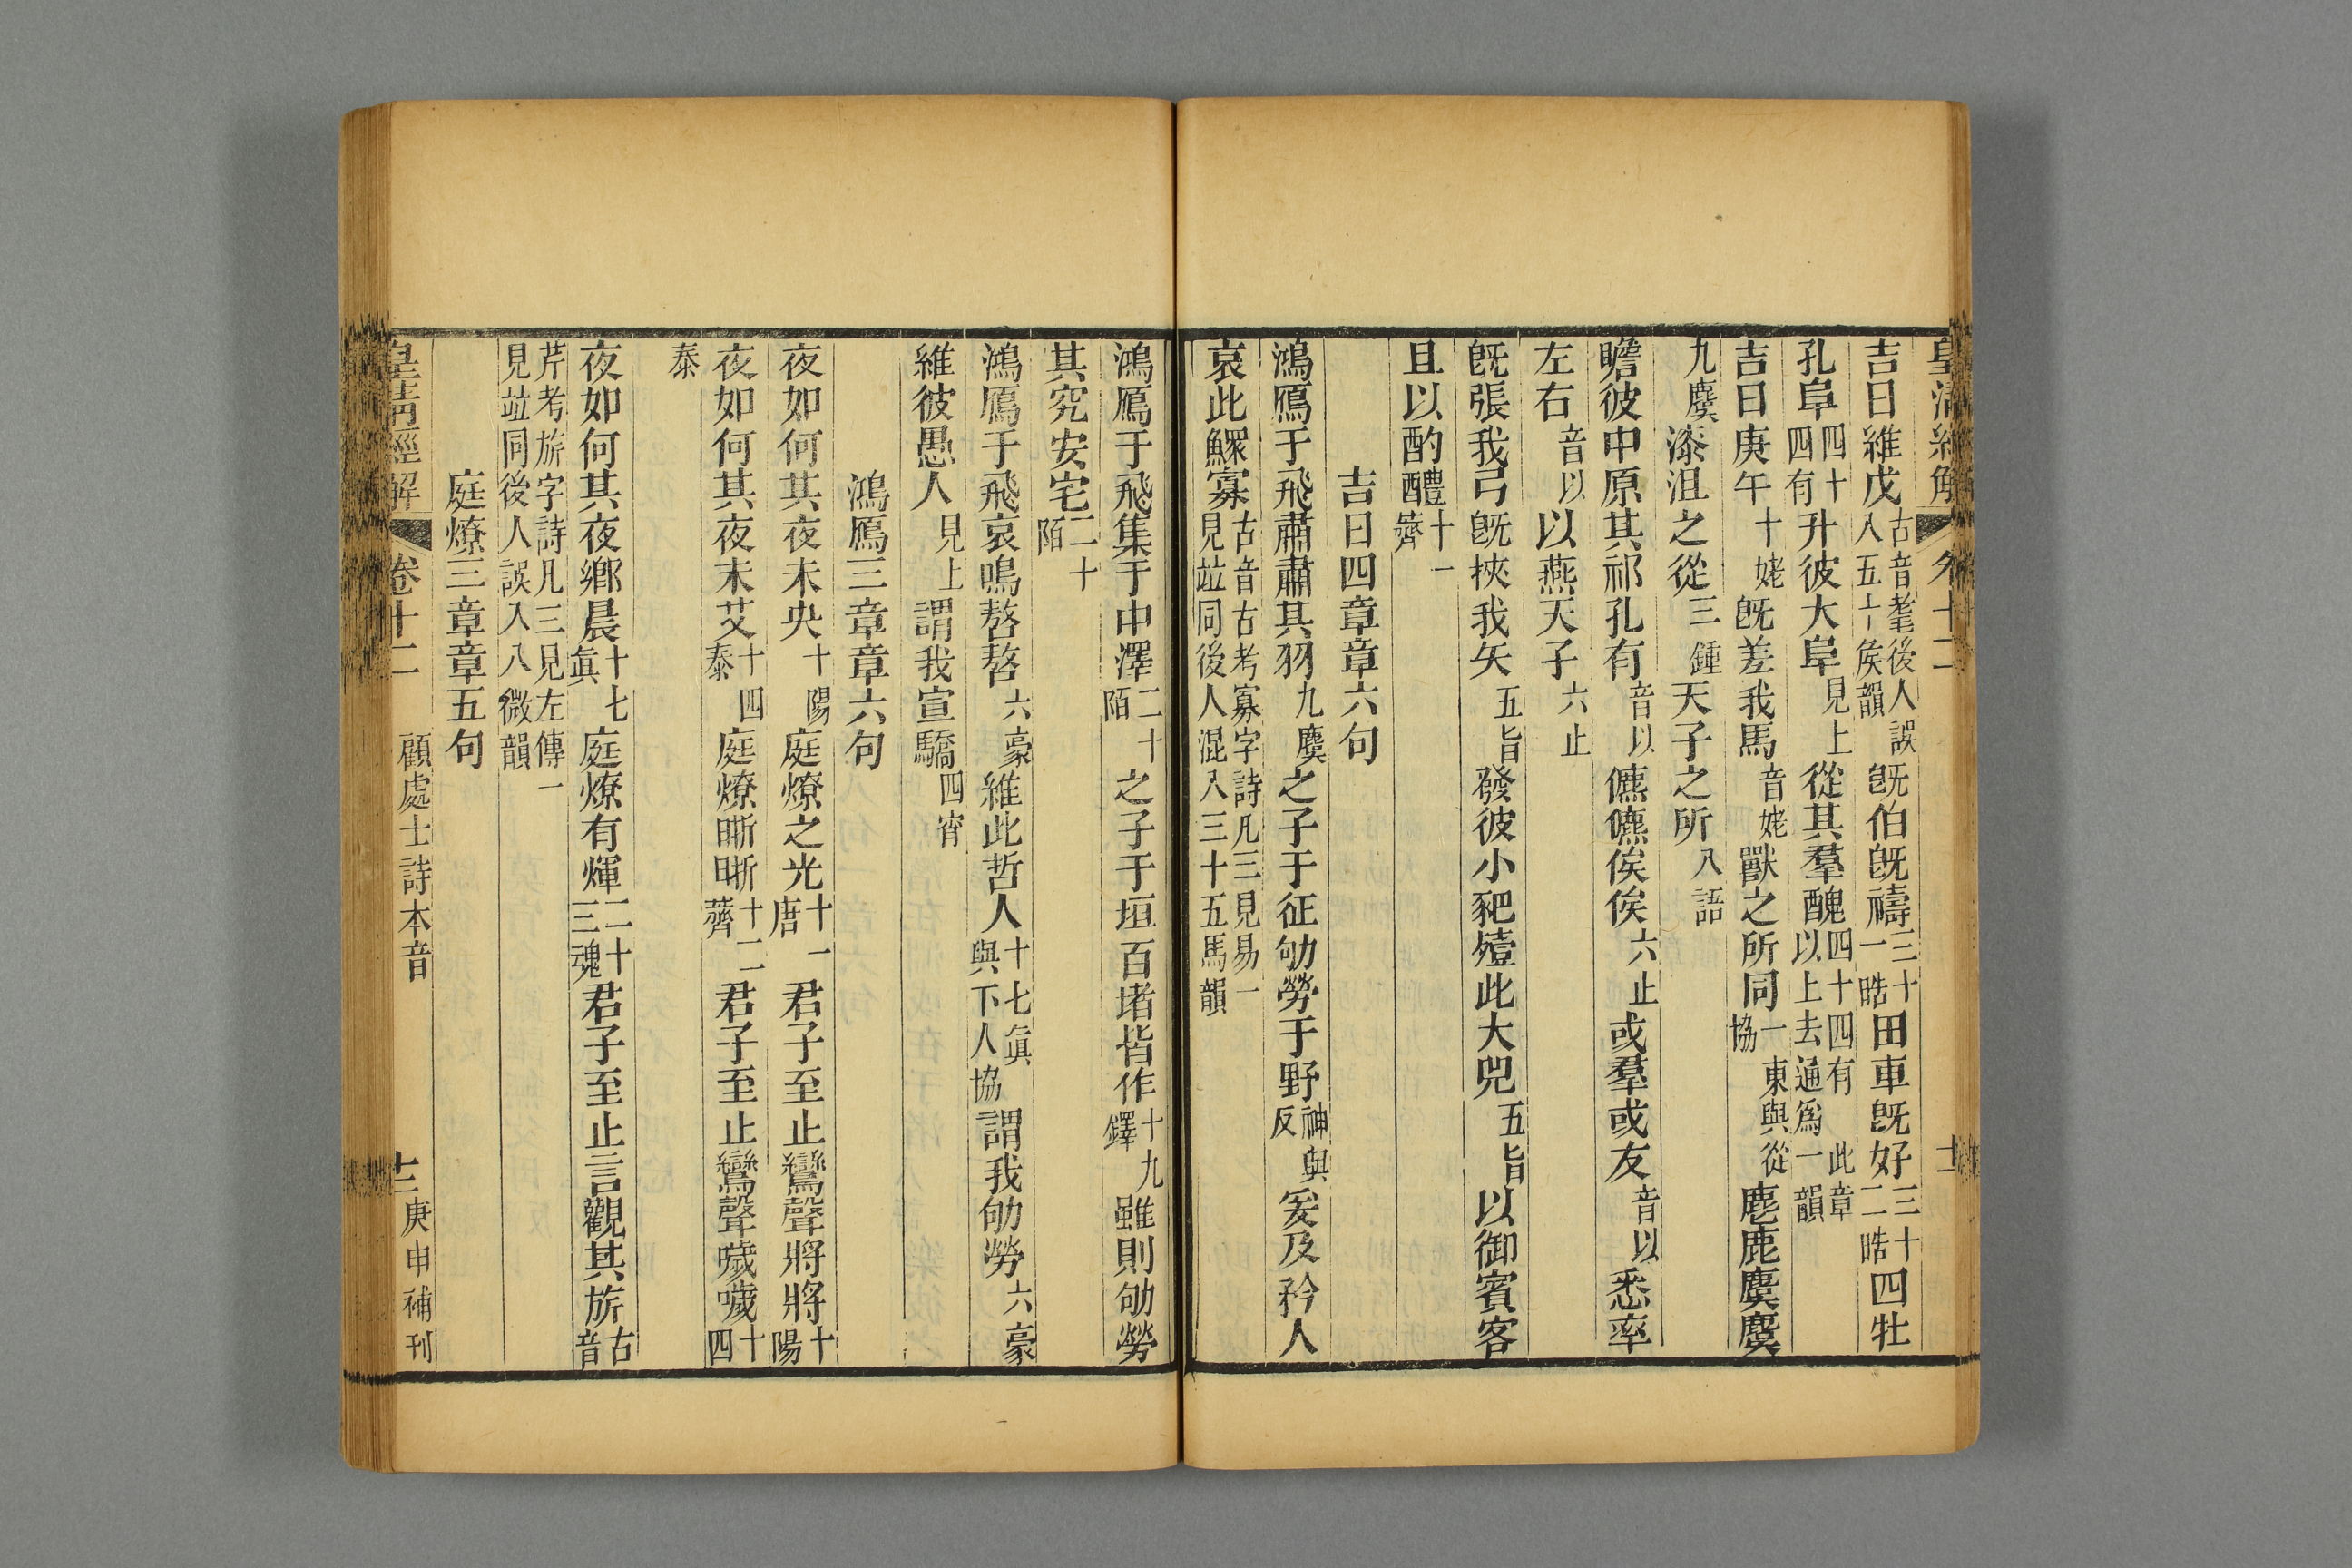 皇清經解 卷十二
吉日維戊古音耄後人誤入五十𠊱韻旣伯旣禱三十二晧田車旣好三十二晧四牡
孔阜四十四有升彼大阜見上從其羣醜四十四有此章以上去通爲一韻
吉日庚午十姥旣差我馬音姥獸之所同一東與從協麀鹿麌麌
九麌漆沮之從三鍾天子之所八語
瞻彼中原其祁孔有音以儦儦俟俟六止或羣或友音以悉率
左右音以以燕天子六止
旣張我弓旣挾我矢五旨發彼小豝殪此大兕五旨以御賓客
且以酌醴十一薺
吉日四章章六句
鴻鴈于飛肅肅其羽九麌之子于征劬勞于野神與反爰及矜人
哀此鰥寡古音古考寡字詩凡三見易一見竝同後人混入三十五馬韻
鴻鴈于飛集于中澤二十陌之子于垣百堵皆作十九鐸雖則劬勞
其究安宅二十陌
鴻鴈于飛哀鳴嗸嗸六豪維此哲人十七眞與下人協謂我劬勞六豪
維彼愚人見上謂我宣驕四宵
鴻鴈三章章六句
夜如何其夜未央十陽庭燎之光十一唐君子至止鸞聲將將十陽
夜如何其夜未艾十四泰庭燎晣晣十二薺君子至止鸞聲噦噦十四
泰
夜如何其夜鄉晨十七眞庭燎有煇二十三魂君子至止言觀其旂古音
芹考旂字詩凡三見左傳一見竝同後人誤入八微韻
庭燎三章章五句
皇清經解 卷十二 顧處士詩本音 十二 庚申補刊